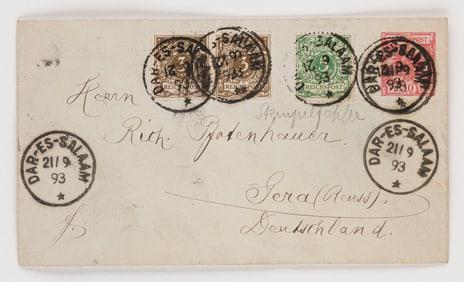 DAR-ES-SALAAM
21/9
93
DAR-ES-SALAAM
93
3
REICHSPOST
3
REICHSPOST
5
REICHSPOST
DAR-ES-SALAAM
93
10
Herrn
Stempelfehler
Rich. Pfotenhauer.
DAR-ES-SALAAM
21/9
93
DAR-ES-SALAAM
21/9
93
Gera (Reuss).
Deutschland.